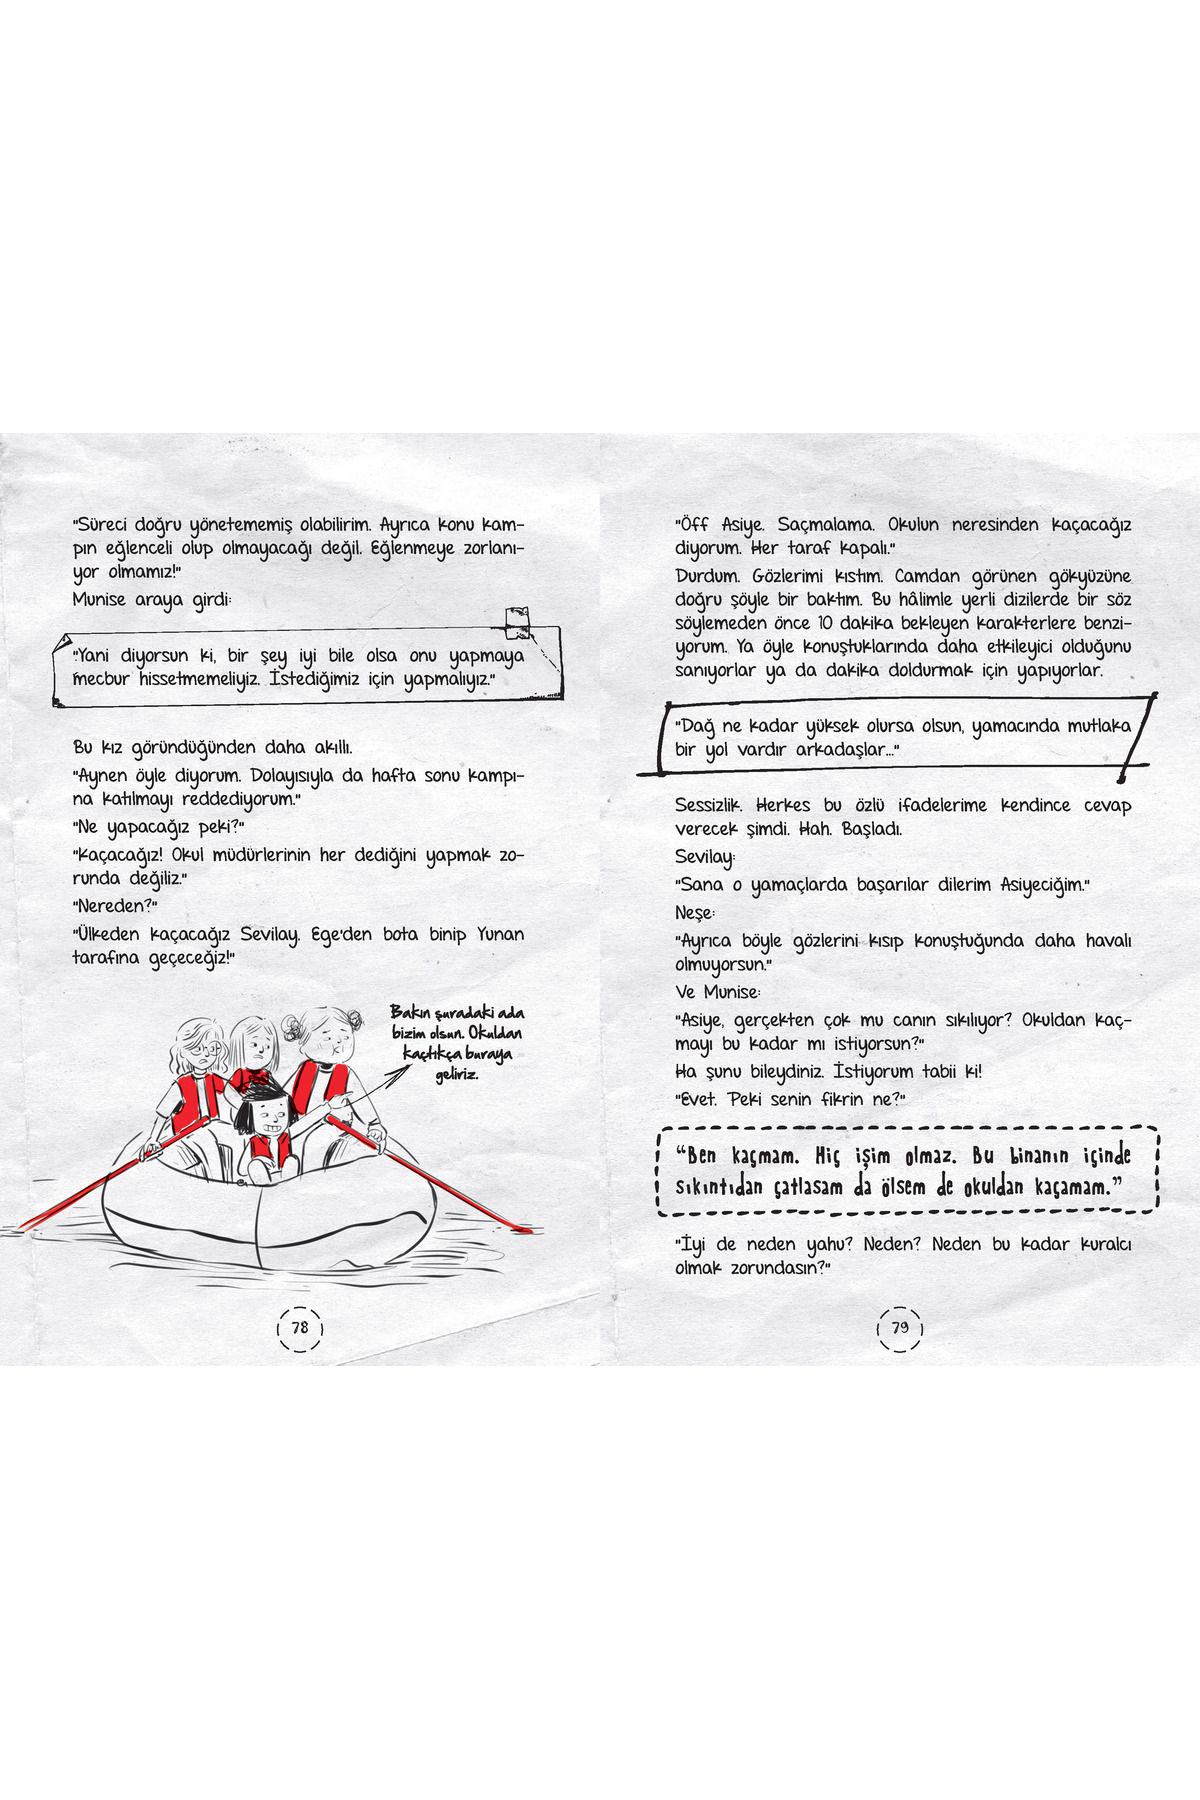 "Süreci doğru yönetememiş olabilirim. Ayrıca konu kam-
pın eğlenceli olup olmayacağı değil. Eğlenmeye zorlanı-
yor olmamız!"
Munise araya girdi:
"Yani diyorsun ki, bir şey iyi bile olsa onu yapmaya
mecbur hissetmemeliyiz. İstediğimiz için yapmalıyız."
Bu kız göründüğünden daha akıllı.
"Aynen öyle diyorum. Dolayısıyla da hafta sonu kampı-
na katılmayı reddediyorum."
"Ne yapacağız peki?"
"Kaçacağız! Okul müdürlerinin her dediğini yapmak zo-
runda değiliz."
"Nereden?"
"Ülkeden kaçacağız Sevilay. Ege'den bota binip Yunan
tarafına geçeceğiz!"
Bakın şuradaki ada
bizim olsun. Okuldan
kaçtıkça buraya
geliriz.
78
"Öff Asiye. Saçmalama. Okulun neresinden kaçacağız
diyorum. Her taraf kapalı."
Durdum. Gözlerimi kıstım. Camdan görünen gökyüzüne
doğru şöyle bir baktım. Bu hâlimle yerli dizilerde bir söz
söylemeden önce 10 dakika bekleyen karakterlere benzi-
yorum. Ya öyle konuştuklarında daha etkileyici olduğunu
sanıyorlar ya da dakika doldurmak için yapıyorlar.
"Dağ ne kadar yüksek olursa olsun, yamacında mutlaka
bir yol vardır arkadaşlar..."
Sessizlik. Herkes bu özlü ifadelerime kendince cevap
verecek şimdi. Hah. Başladı.
Sevilay:
"Sana o yamaçlarda başarılar dilerim Asiyeciğim."
Neşe:
"Ayrıca böyle gözlerini kısıp konuştuğunda daha havalı
olmuyorsun."
Ve Munise:
"Asiye, gerçekten çok mu canın sıkılıyor? Okuldan kaç-
mayı bu kadar mı istiyorsun?"
Ha şunu bileydiniz. İstiyorum tabii ki!
"Evet. Peki senin fikrin ne?"
"Ben kaçmam. Hiç işim olmaz. Bu binanın içinde
sıkıntıdan çatlasam da ölsem de okuldan kaçamam."
"İyi de neden yahu? Neden? Neden bu kadar kuralcı
olmak zorundasın?"
79